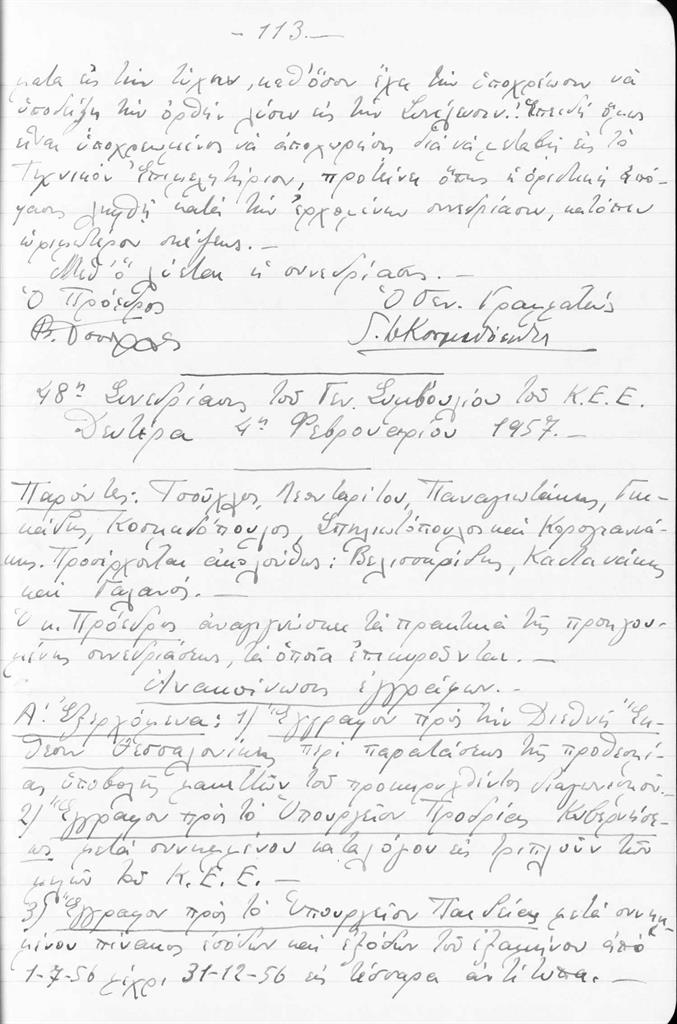 - 113.-
ματα εἰς τὴν τύχην, καθ' ὅσον ἔχει τὴν ὑποχρέωσιν νὰ
ὑποδείξῃ τὴν ὀρθὴν λύσιν εἰς τὴν Συνέλευσιν. Ἐπειδὴ ὅμως
εἶναι ὑποχρεωμένος νὰ ἀποχωρήσῃ διὰ νὰ μεταβῇ εἰς τὸ
Τεχνικὸν Ἐπιμελητήριον, προτείνει ὅπως ἡ ὁριστικὴ ἀπό-
φασις ληφθῇ κατὰ τὴν ἐρχομένην συνεδρίασιν, κατόπιν
ὡριμωτέρου σκέψεως. -
Μεθ' ὃ λύεται ἡ συνεδρίασις. -
Ὁ Πρόεδρος Ὁ Γεν. Γραμματεὺς
48η Συνεδρίασις τοῦ Γεν. Συμβουλίου τοῦ Κ.Ε.Ε.
Δευτέρα 4η Φεβρουαρίου 1957.-
Παρόντες: Τσοῦχλος, Λεονταρίτου, Παναγιωτάκης, Γι-
κάδης, Κοσμαδόπουλος, Σπηλιωτόπουλος καὶ Καρογιαννά-
κης. Προσέρχονται ἀκολούθως: Βελισσαρίδης, Καστανάκης
καὶ Γαλανός. -
Ὁ κ. Πρόεδρος ἀναγιγνώσκει τὰ πρακτικὰ τῆς προηγου-
μένης συνεδριάσεως, τὰ ὁποῖα ἐπικυροῦνται. -
Ἀνακοίνωσις ἐγγράφων. -
Α'. Ἐξερχόμενα: 1) Ἔγγραφον πρὸς τὴν Διεθνῆ Ἔκ-
θεσιν Θεσσαλονίκης περὶ παρατάσεως τῆς προθεσμί-
ας ὑποβολῆς μακεττῶν τοῦ προκηρυχθέντος διαγωνισμοῦ.-
2) Ἔγγραφον πρὸς τὸ Ὑπουργεῖον Προεδρίας Κυβερνήσε-
ως μετὰ συνημμένου καταλόγου εἰς τριπλοῦν τῶν
μελῶν τοῦ Κ.Ε.Ε. -
3) Ἔγγραφον πρὸς τὸ Ὑπουργεῖον Παιδείας μετὰ συνημ-
μένου πίνακος ἐσόδων καὶ ἐξόδων τοῦ ἑξαμήνου ἀπὸ
1-7-56 μέχρι 31-12-56 εἰς τέσσαρα ἀντίτυπα. -